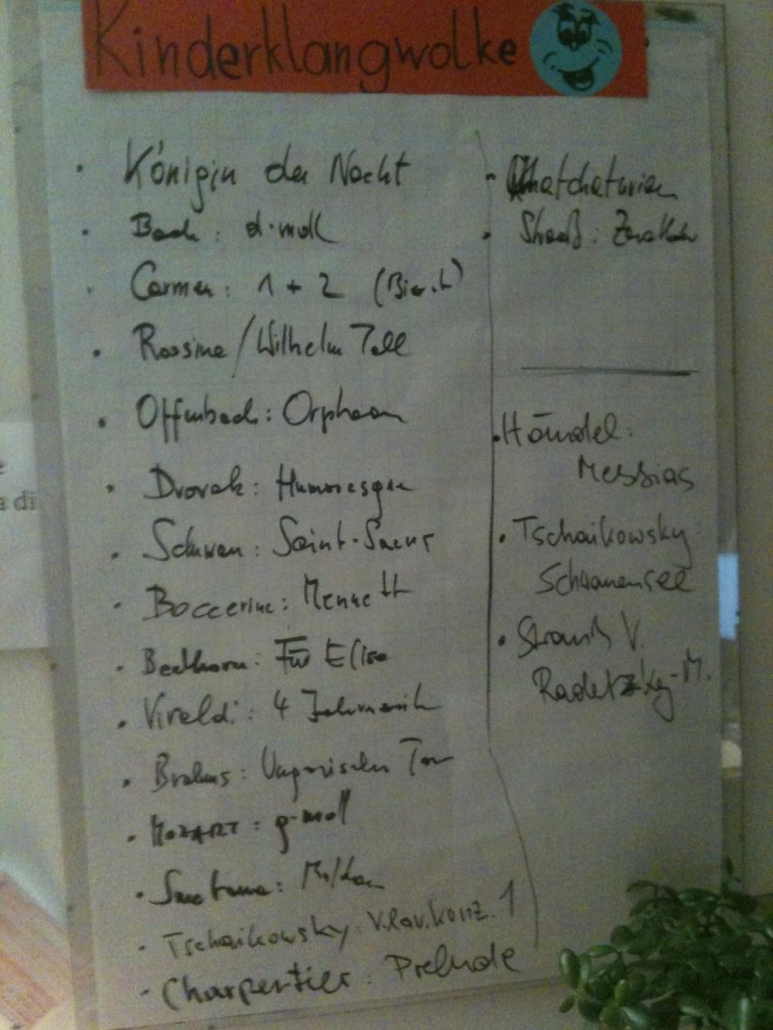 Kinderklangwolke
Königin der Nacht
Bach: d-moll
Carmen: 1 + 2
Rossini/Wilhelm Tell
Offenbach: Orpheon
Dvorak: Humoresque
Schwan: Saint-Saens
Boccerini: Menuett
Beethoven: Für Elise
Vivaldi: 4
Brahms: Ungarischer
MOZART: g-moll
Smetana: Moldau
Tschaikowsky: Klav.konz. 1
Charpentier: Prelude
Khatchaturian
Strauß:
Händel:
Messias
Tschaikowsky:
Schwanensee
Strauß V.
Radetzky-M.
e
a di